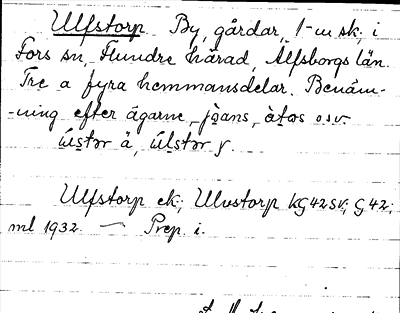 Ulfstorp By, gårdar, 1-m sk; i
Fors sn, Flundre härad, Älfsborgs län.
Tre a fyra hemmansdelar. Benäm-
-ning efter ägarne, osv
Ulfstorp ek; Ulvstorp KG42SV; G42;
ml 1932. — Prep. i.